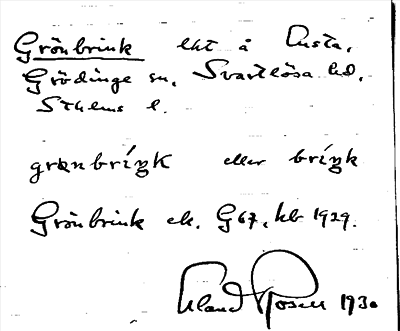 Grönbrink lht å Ansta,
Grödinge sn, Svartlösa hd,
Sthlms l.
grønbríŋk eller bríŋk
Grönbrink ek. G67, kb 1929.
Erland Rosell 1930